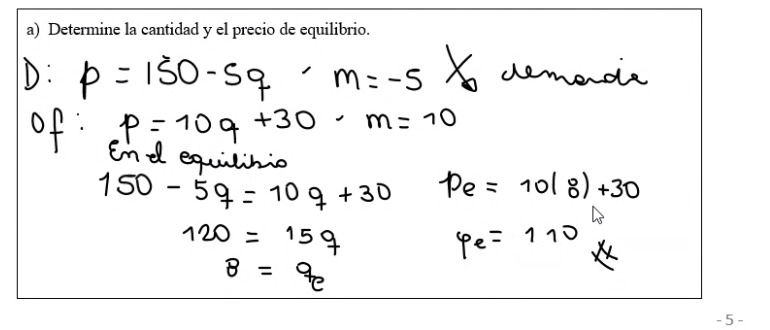 a) Determine la cantidad y el precio de equilibrio.
D: p = 150 - 5q · m = -5 demanda
Of: p = 10q + 30 · m = 10
En el equilibrio
150 - 5q = 10q + 30
120 = 15q
8 = qe
Pe = 10(8) + 30
pe = 110
- 5 -